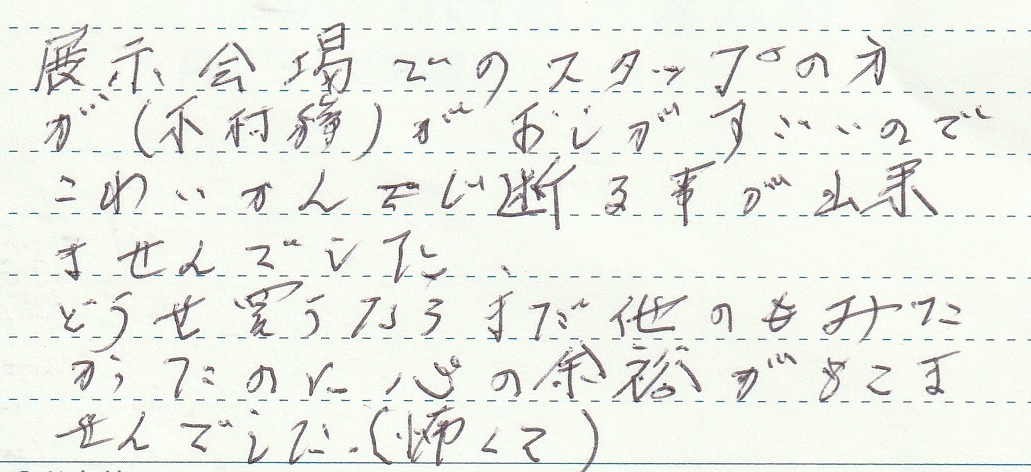 展示会場でのスタップの方
が(木村静)がおしがすごいので
こわいかんじで断る事が出来
ませんでした、
どうせ買うならまだ他のもみた
かったのに心の余裕がもてま
せんでした.(怖くて)